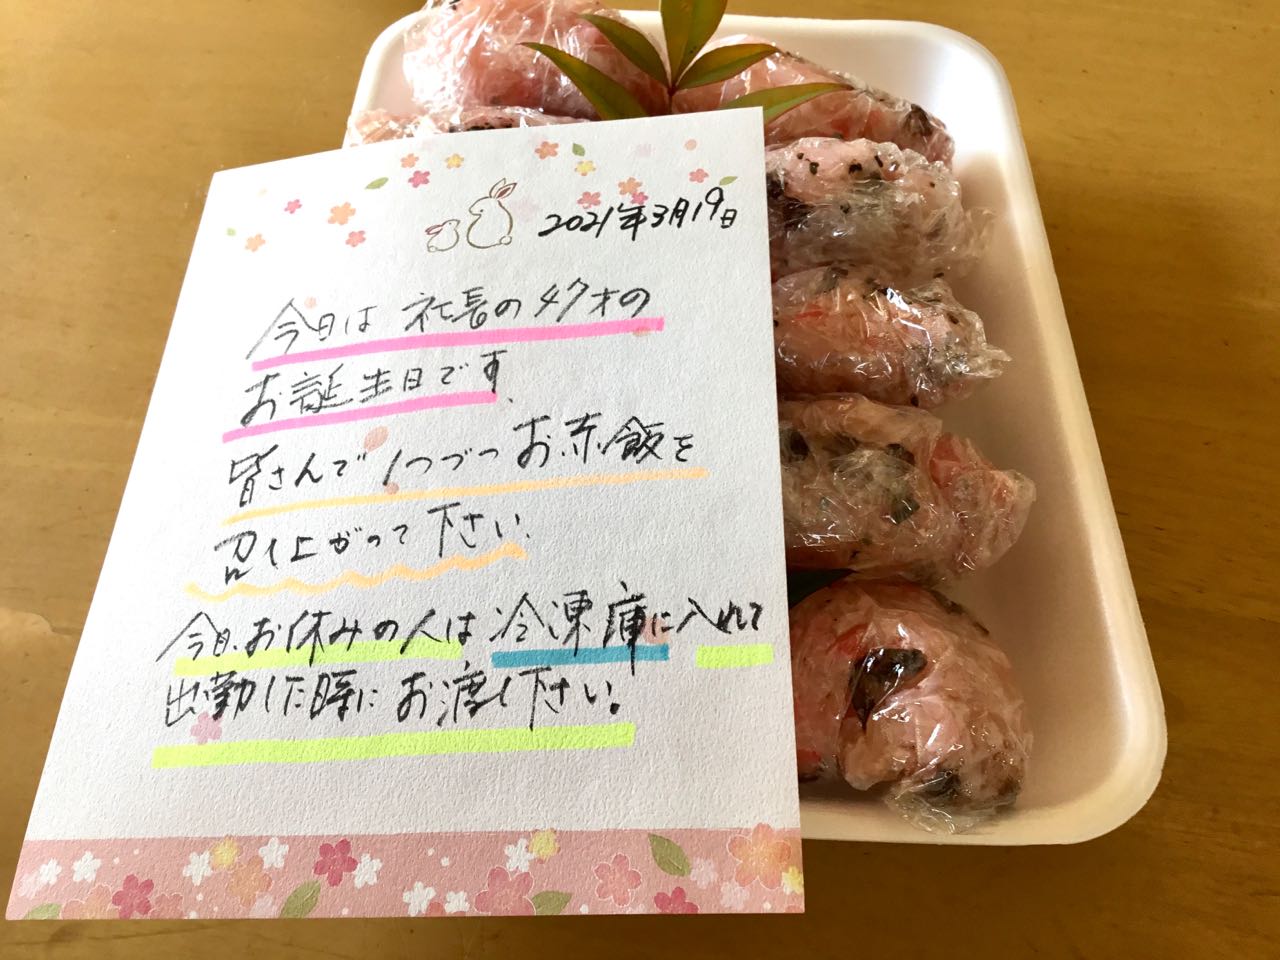 2021年3月19日
今日は 社長の47才の
お誕生日です
皆さんで 1つづつ お赤飯を
召し上がって下さい
今日、お休みの人は 冷凍庫に入れて
出勤した時に お渡し下さい。